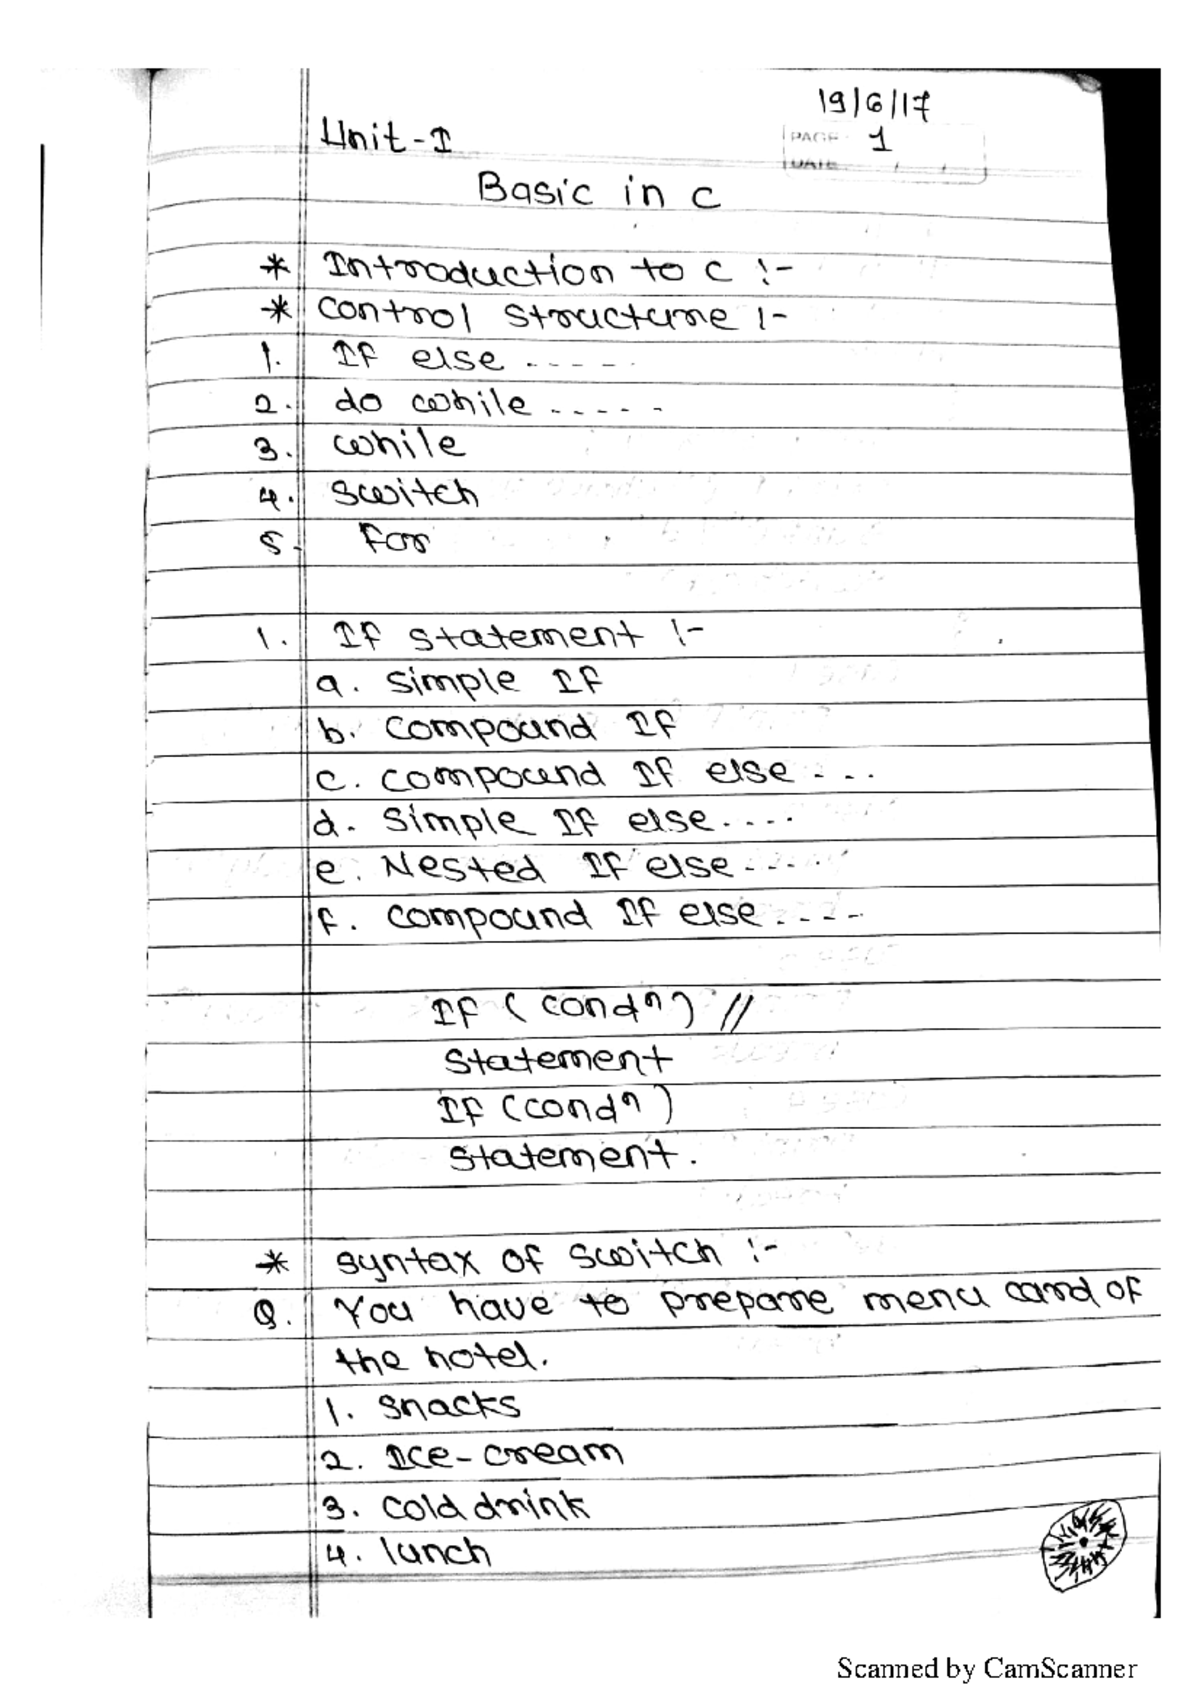 19/6/17
Unit-I
PAGE 1
DATE / /
Basic in c
* Introduction to c :-
* control structure :-
1. If else -----
2. do while -----
3. while
4. switch
5. for
1. If statement :-
a. simple If
b. compound If
c. compound If else ...
d. simple If else....
e. Nested If else ----
f. compound If else ----
If (condⁿ) //
statement
If (condⁿ)
statement.
* syntax of switch :-
Q. You have to prepare menu card of
the hotel.
1. snacks
2. Ice-cream
3. cold drink
4. lunch
Scanned by CamScanner